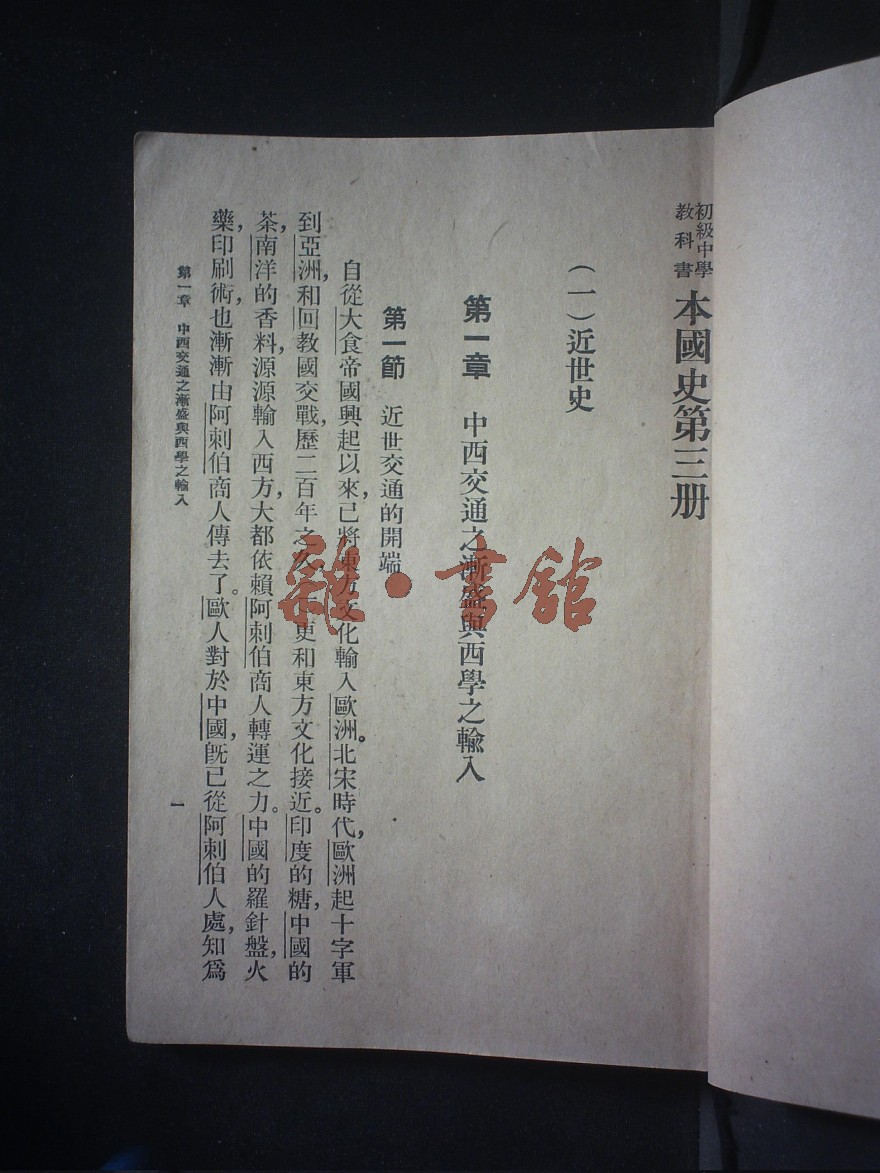 初級中學
教科書
本國史第三册
(一)近世史
第一章 中西交通之漸盛與西學之輸入
第一節 近世交通的開端
自從大食帝國興起以來,已將東方文化輸入歐洲。北宋時代,歐洲起十字軍
到亞洲,和回教國交戰,歷二百年之久,更和東方文化接近。印度的糖,中國的
茶,南洋的香料,源源輸入西方,大都依賴阿剌伯商人轉運之力。中國的羅針盤,火
藥,印刷術,也漸漸由阿剌伯商人傳去了。歐人對於中國,旣已從阿剌伯人處,知爲
第一章 中西交通之漸盛與西學之輸入
一
雜·書館